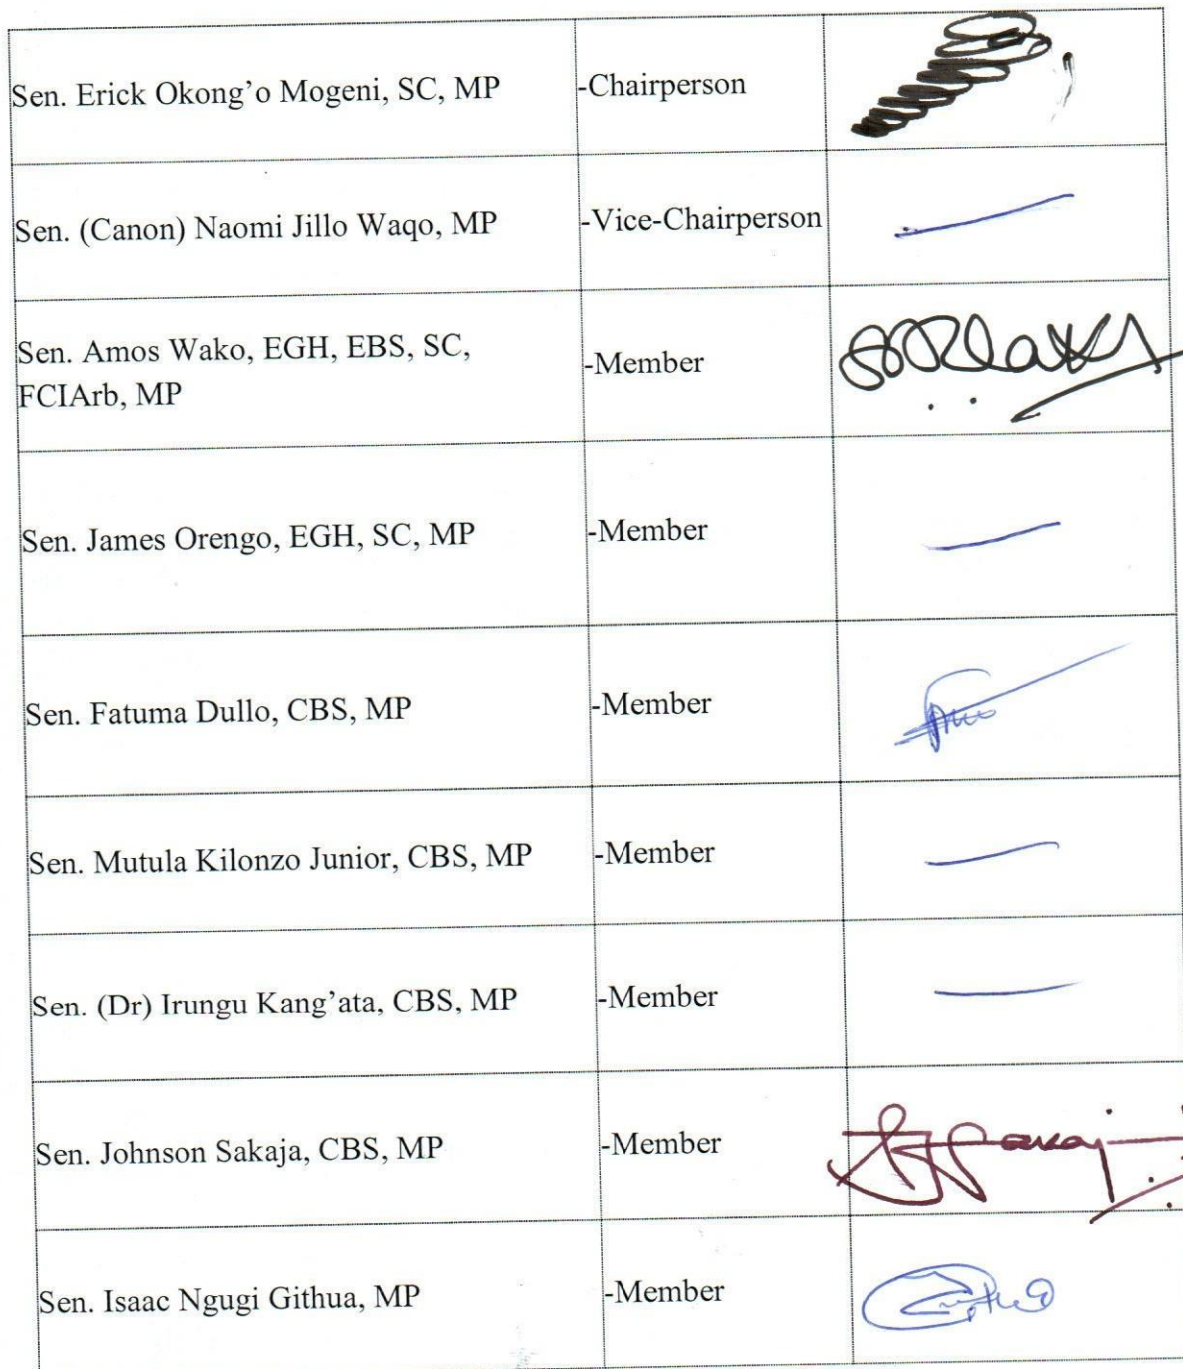 Sen. Erick Okong’o Mogeni, SC, MP -Chairperson
Sen. (Canon) Naomi Jillo Waqo, MP -Vice-Chairperson
Sen. Amos Wako, EGH, EBS, SC,
FCIArb, MP -Member
Sen. James Orengo, EGH, SC, MP -Member
Sen. Fatuma Dullo, CBS, MP -Member
Sen. Mutula Kilonzo Junior, CBS, MP -Member
Sen. (Dr) Irungu Kang’ata, CBS, MP -Member
Sen. Johnson Sakaja, CBS, MP -Member
Sen. Isaac Ngugi Githua, MP -Member